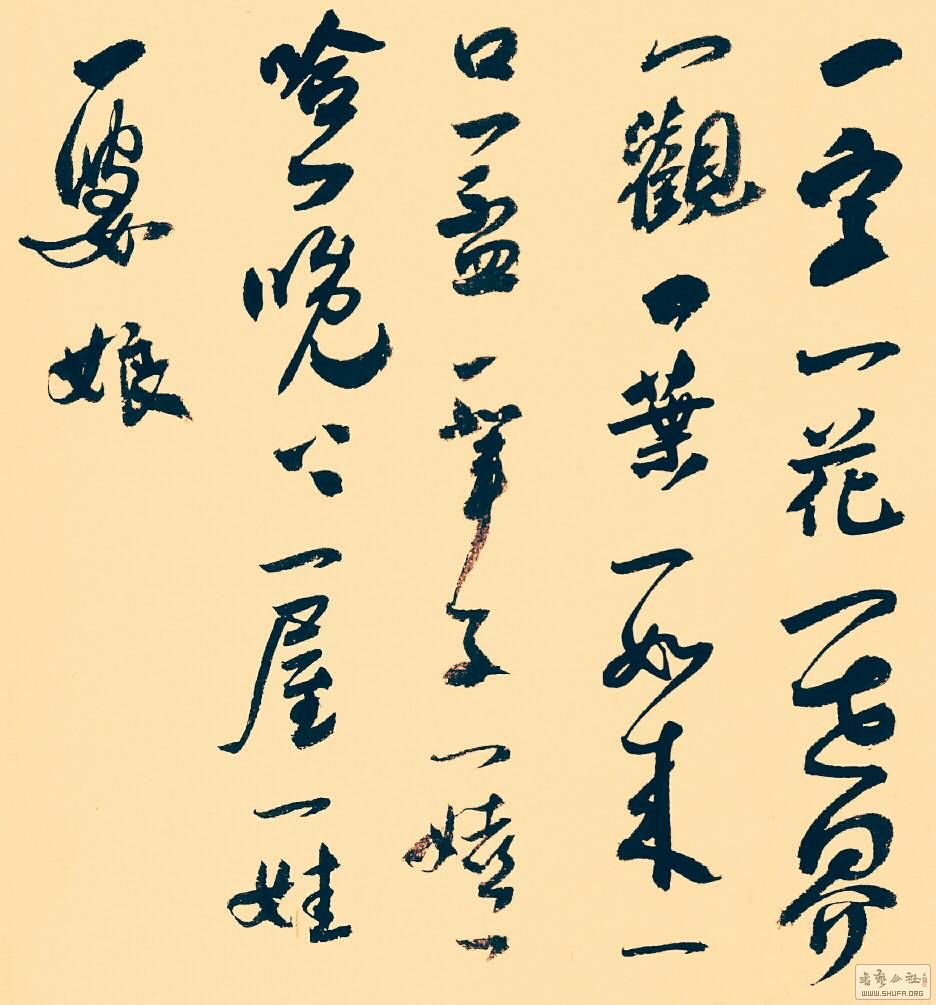 一字一花一世界
一觀一葉一如来一
口一盃一輩子一嬉一
哈一晚上一屋一娃
一婆娘
書藝公社
WWW.SHUFA.ORG